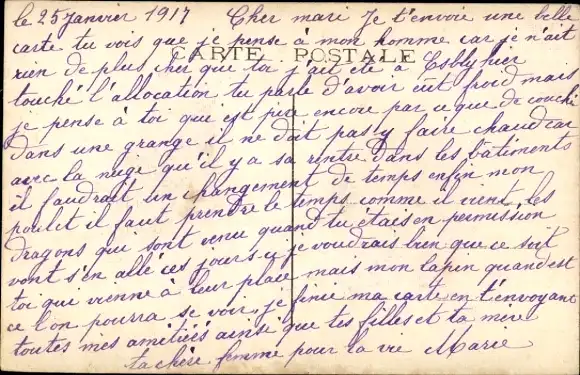 le 25 Janvier 1917 Cher mari Je t'envoie une belle
carte tu vois que je pense à mon homme car je n'ait
CARTE POSTALE
rien de plus cher que toi j'ait été à Esbly hier
touché l'allocation tu parle d'avoir eût froid mais
je pense à toi qui est pire encore par ce que de couché
dans une grange il ne doit pas y faire chaud car
avec la neige qu'il y a sa rentre dans les bâtiments
il faudrait un changement de temps enfin mon
poulit il faut prendre le temps comme il vient les
dragons que sont venu quand tu étais en permission
vont s'en allé ces jours ci je voudrais bien que ce soit
toi qui vienne à leur place mais mon lapin quand est
ce l'on pourra se voir, je finie ma carte en t'envoyant
toutes mes amitiés ainsi que tes filles et ta mère
ta chère femme pour la vie Marie